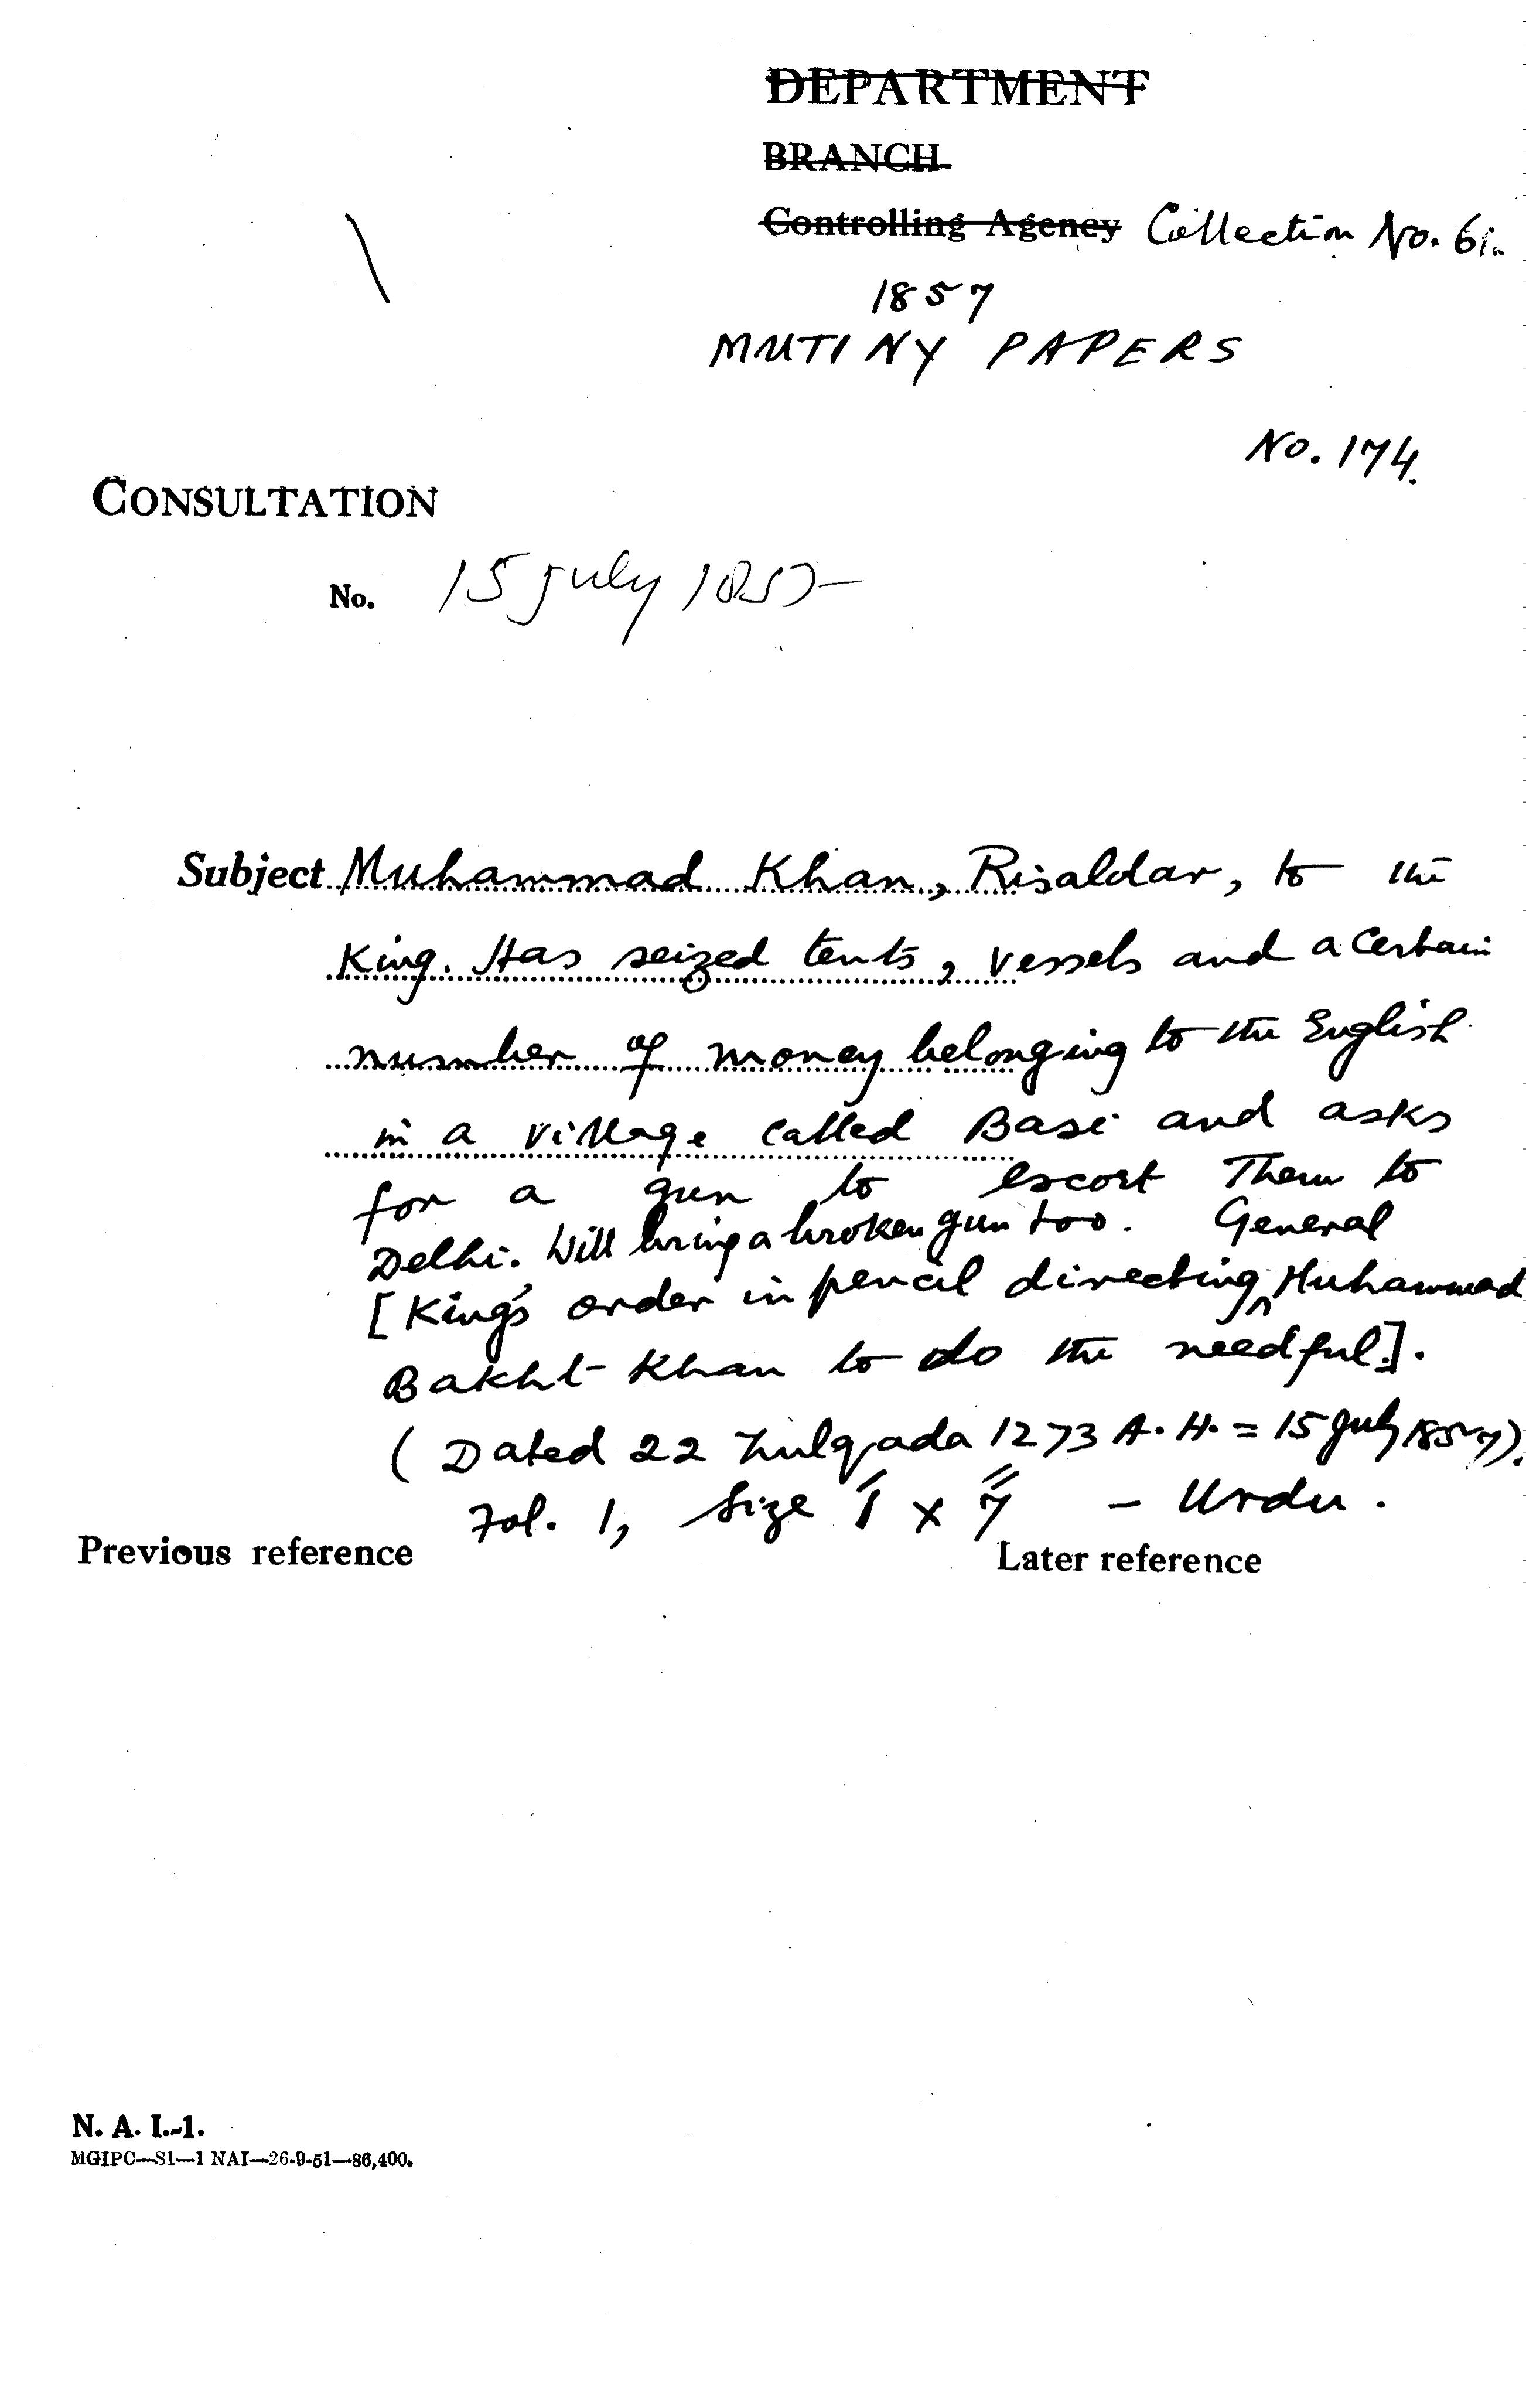 DEPARTMENT
BRANCH
Controlling Agency Collection No. 61.
1857
MUTINY PAPERS
No. 174.
CONSULTATION
No. 15 July 1857
Subject Muhammad Khan, Risaldar, to the
King. Has seized tents, vessels and a certain
number of money belonging to the English
in a village called Basi and asks
for a gun to escort them to
Delhi. Will bring a broken gun too. General
[King's order in pencil directing ^ Muhammad
Bakht Khan to do the needful].
(Dated 22 Zulqada 1273 A.H. = 15 July 1857).
Fol. 1, Size × 7" - Urdu.
Previous reference Later reference
N. A. I.-1.
MGIPC—S1—1 NAI—26-9-51—86,400.